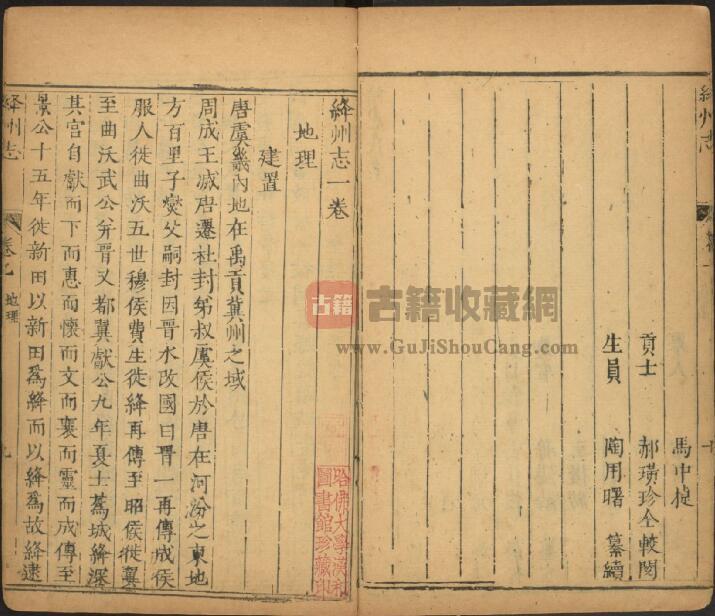 絳州志
馬中
貢士　郝璜珍仝較閱
生員　陶用曙　纂續
絳州志一卷
地理
建置
唐虞畿內地在禹貢冀州之域
周成王滅唐遷社封弟叔虞侯於唐在河汾之東地
方百里子燮父嗣封因晉水改國曰晉一再傳成侯
服人徙曲沃五世穆侯費生徙絳再傳至昭侯徙翼
至曲沃武公并晉又都冀獻公九年夏士蔿城絳深
其宮自獻而下而惠而懷而文而襄而靈而成傳至
景公十五年徙新田以新田爲絳而以絳爲故絳逮
絳州志　卷之　地理　九
哈佛大學漢和
圖書館珍藏印
古籍 古籍收藏網
www.GuJiShouCang.com